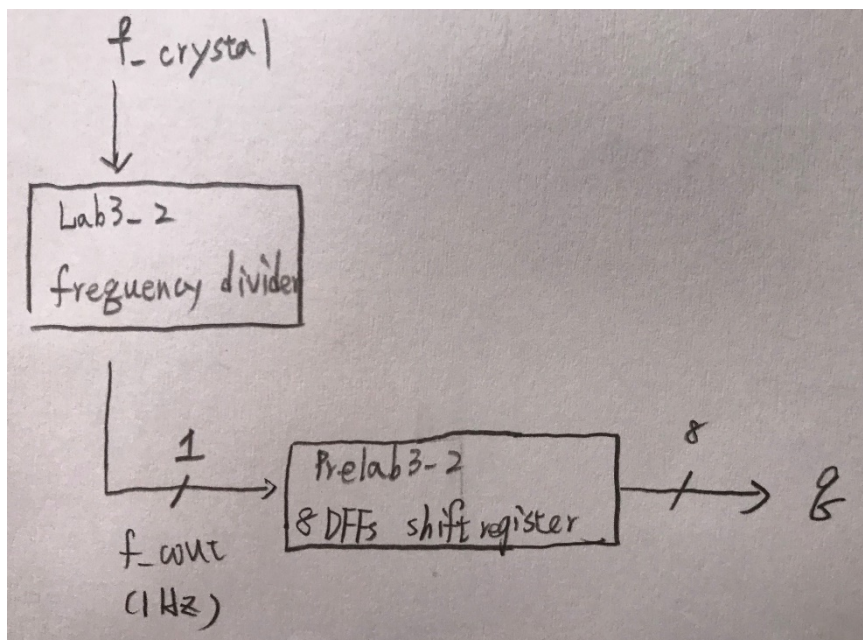 f_crystal
Lab3-2
frequency divider
1
f_cout
(1Hz)
Prelab3-2
8 DFFs shift register
8
q